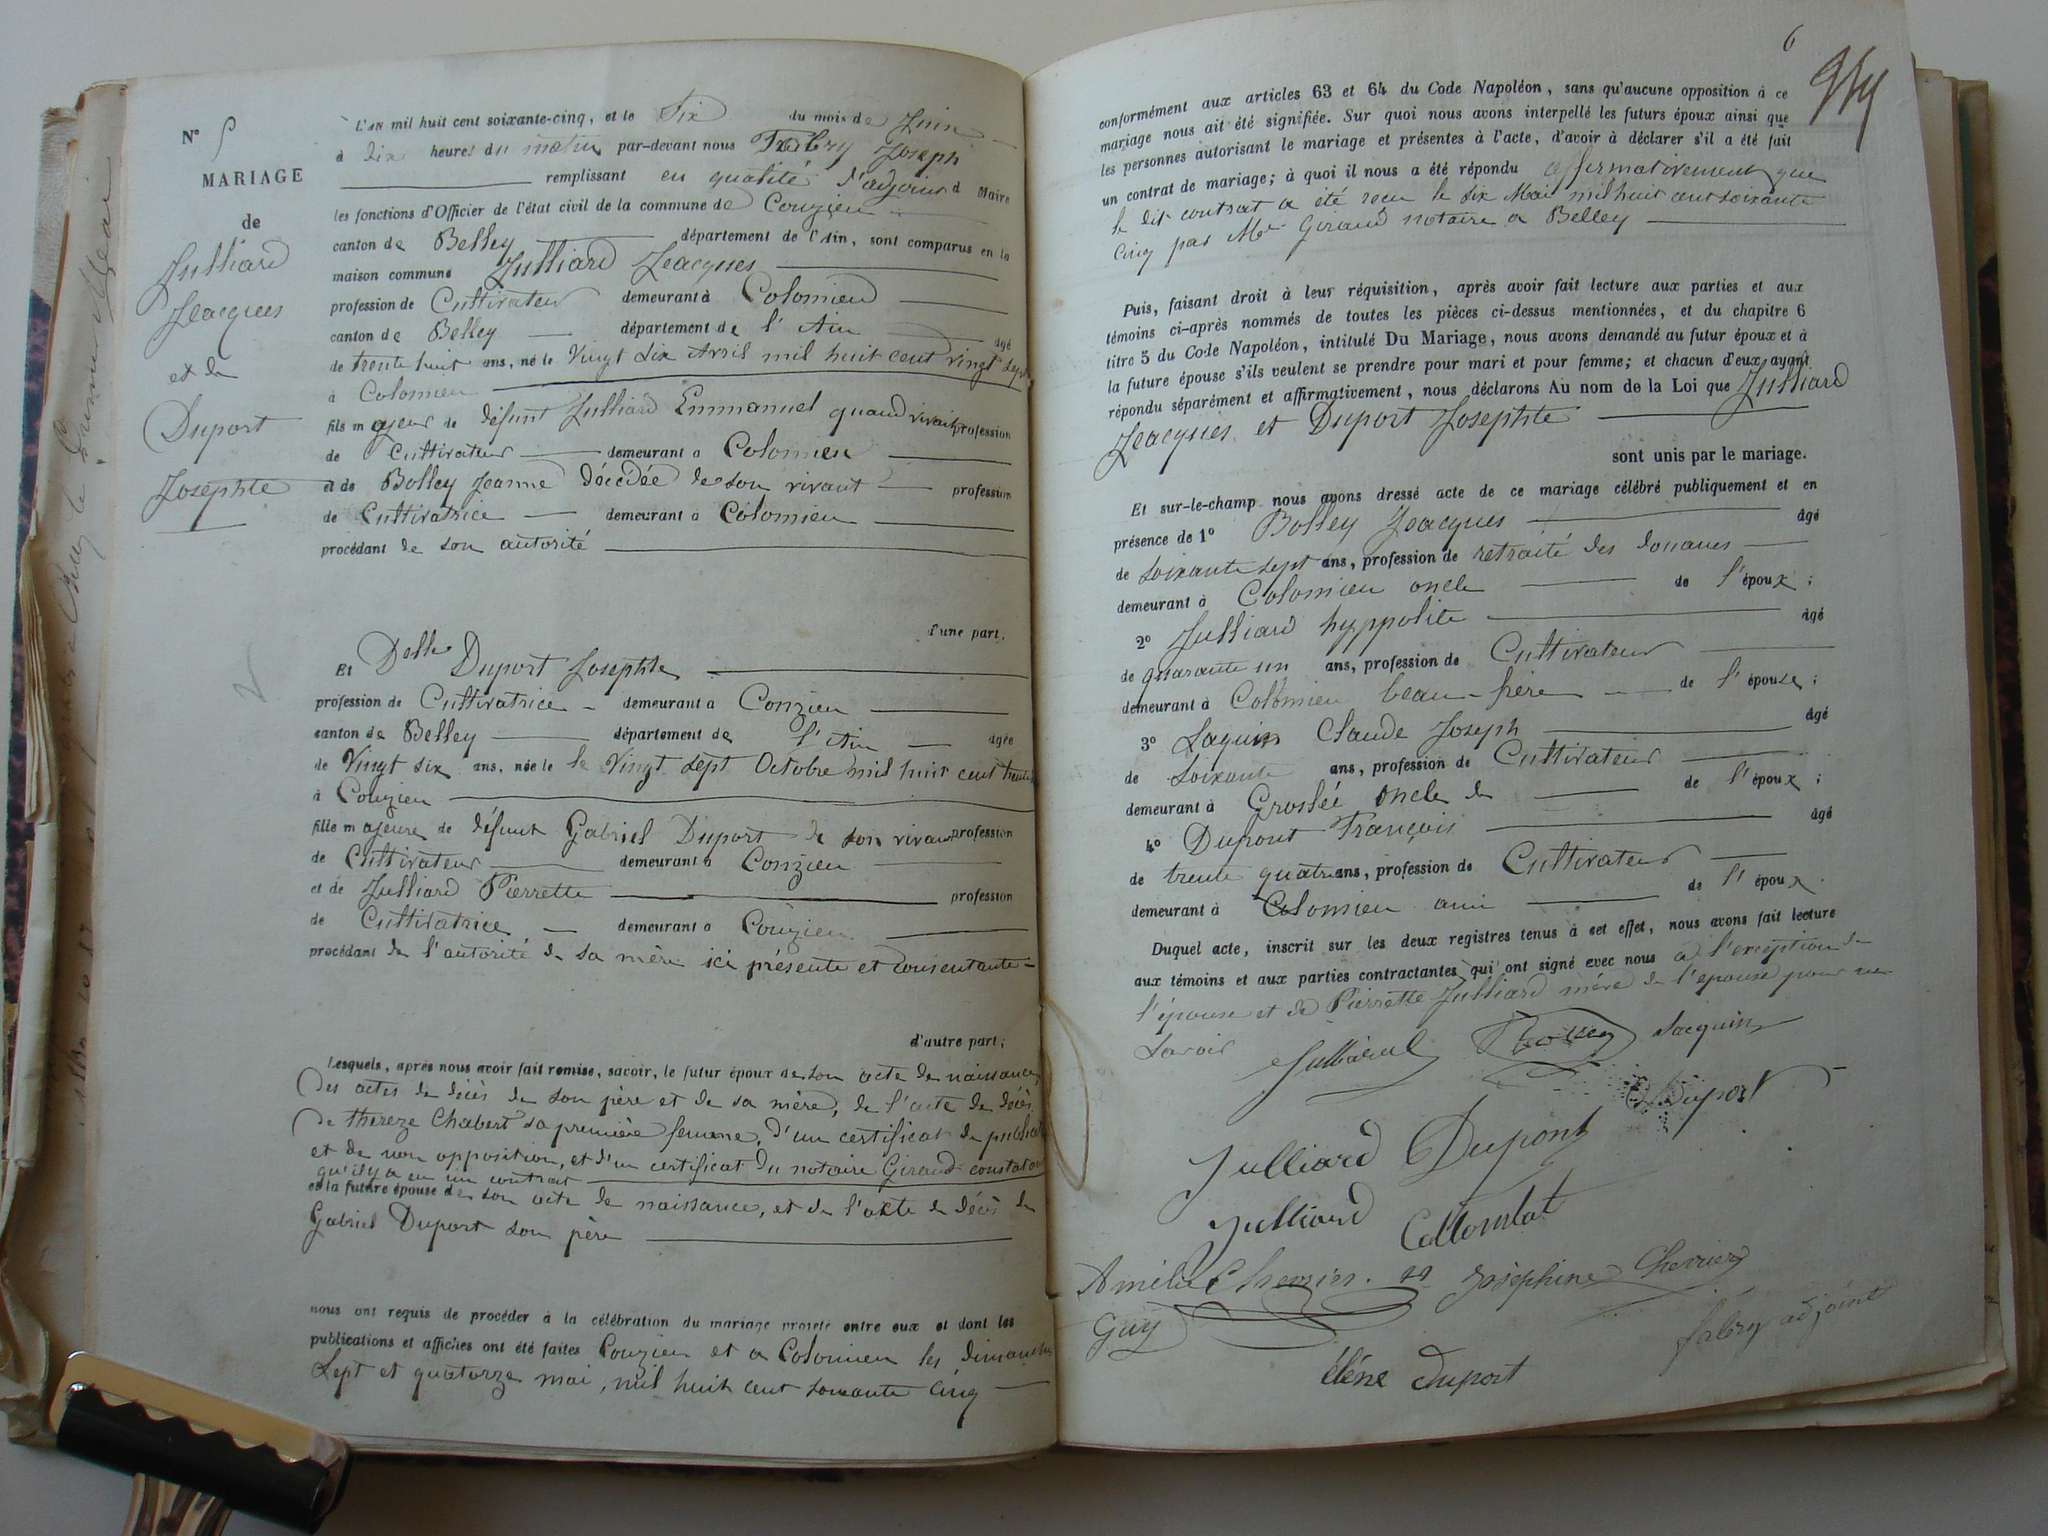 N° 5
MARIAGE
de
Julliard
Jeacques
et de
Duport
Josephte
L'an mil huit cent soixante-cinq, et le Six du mois de Juin
à dix heures du matin par-devant nous Fabry Joseph
remplissant en qualité d'adjoint d Maire
les fonctions d'Officier de l'état civil de la commune de Couzieu
canton de Belley département de l'Ain, sont comparus en la
maison commune Julliard Jeacques
profession de Cultivateur demeurant à Colomieu
canton de Belley département de l'Ain âgé
de trente huit ans, né le Vingt Six Avril mil huit cent vingt sept
à Colomieu
fils majeur de défunt Julliard Emmanuel quand vivait profession
de Cultivateur demeurant à Colomieu
et de Bolley Jeanne Décédée de son vivant profession
de Cultivatrice demeurant à Colomieu
procédant de son autorité
d'une part.
Et Delle Duport Josephte
profession de Cultivatrice demeurant à Couzieu
canton de Belley département de l'Ain âgée
de Vingt six ans, née le le Vingt sept Octobre mil huit cent trente
à Couzieu
fille majeure de défunt Gabriel Duport de son vivant profession
de Cultivateur demeurant à Couzieu
et de Julliard Pierrette profession
de Cultivatrice demeurant à Couzieu
procédant de l'autorité de sa mère ici présente et consentante
d'autre part;
Lesquels, après nous avoir fait remise, savoir, le futur époux de son acte de naissance,
des actes de décès de son père et de sa mère, de l'acte de décès
de thereze Chabert sa première femme, d'un certificat de
et de non opposition, et d'un certificat du notaire Giraud constatant
qu'il y a eu un contrat
et la future épouse de son acte de naissance, et de l'acte de décès de
Gabriel Duport son père
nous ont requis de procéder à la célébration du mariage projeté entre eux et dont les
publications et affiches ont été faites Couzieu et a Colomieu les dimanches
Sept et quatorze mai, mil huit cent soixante cinq
6
conformément aux articles 63 et 64 du Code Napoléon, sans qu'aucune opposition à ce
mariage nous ait été signifiée. Sur quoi nous avons interpellé les futurs époux ainsi que
les personnes autorisant le mariage et présentes à l'acte, d'avoir à déclarer s'il a été fait
un contrat de mariage; à quoi il nous a été répondu affirmativement que
le dit contrat a été reçu le six Mai mil huit cent soixante
cinq par Me Giraud notaire a Belley
Puis, faisant droit à leur réquisition, après avoir fait lecture aux parties et aux
témoins ci-après nommés de toutes les pièces ci-dessus mentionnées, et du chapitre 6
titre 5 du Code Napoléon, intitulé Du Mariage, nous avons demandé au futur époux et à
la future épouse s'ils veulent se prendre pour mari et pour femme; et chacun d'eux ayant
répondu séparément et affirmativement, nous déclarons Au nom de la Loi que Julliard
Jeacques et Duport Josephte
sont unis par le mariage.
Et sur-le-champ nous avons dressé acte de ce mariage célébré publiquement et en
présence de 1° Bolley Jeacques âgé
de soixante sept ans, profession de retraité des douanes
demeurant à Colomieu oncle de l'époux;
2° Julliard hyppolite âgé
de quarante un ans, profession de Cultivateur
demeurant à Colomieu beau-frère de l'épouse;
3° Saquin Claude Joseph âgé
de Soixante ans, profession de Cultivateur
demeurant à Groslée oncle de de l'époux;
4° Dupont François âgé
de trente quatre ans, profession de Cultivateur
demeurant à Colomieu ami de l'époux.
Duquel acte, inscrit sur les deux registres tenus à cet effet, nous avons fait lecture
aux témoins et aux parties contractantes qui ont signé avec nous a l'exception de
l'épouse et de Pierrette Julliard mère de l'épouse pour ne
savoir
Julliard Bolley Jacquin
Duport
Julliard Dupont
Julliard Collombat
Amélie Cherrier Joséphine Cherrier
Guy
fabry adjoint
éléne duport